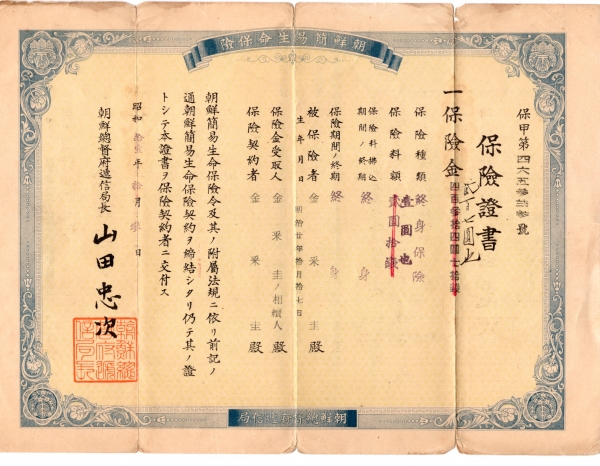 朝鮮簡易生命保險
保甲第四六五參弐參號
保險證書
一保險金四百參拾四圓七拾錢
保險種類 終身保險
保險料額 貳圓拾錢
壹圓也
保險料拂込期間ノ終期 終身
保險期間ノ終期 終身
被保險者 金釆圭殿
生年月日 明治廿年拾月拾七日
保險金受取人 金釆圭ノ相續人殿
保險契約者 金釆圭殿
朝鮮簡易生命保險令及其ノ附屬法規ニ依リ前記ノ
通朝鮮簡易生命保險契約ヲ締結シタリ仍テ其ノ證
トシテ本證書ヲ保險契約者ニ交付ス
昭和 年拾月 日
朝鮮總督府遞信局長 山田忠次
朝鮮總督府遞信局